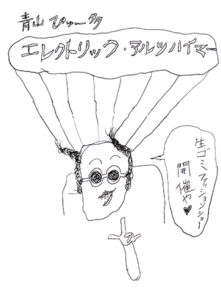 青山 ぴゅー多
エレクトリック・アルツハイマー
生ゴミファッションショー
開催や♥